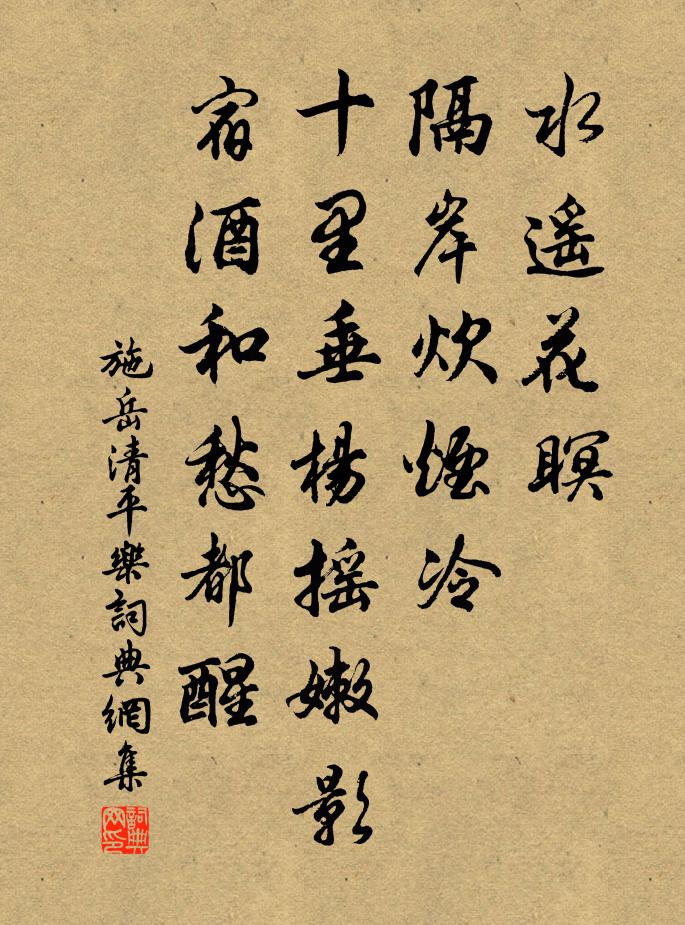 水遥花暝
隔岸炊煙冷
十里垂楊摇嫩影
宿酒和愁都醒
施岳清平樂詞典網集
詞典网印